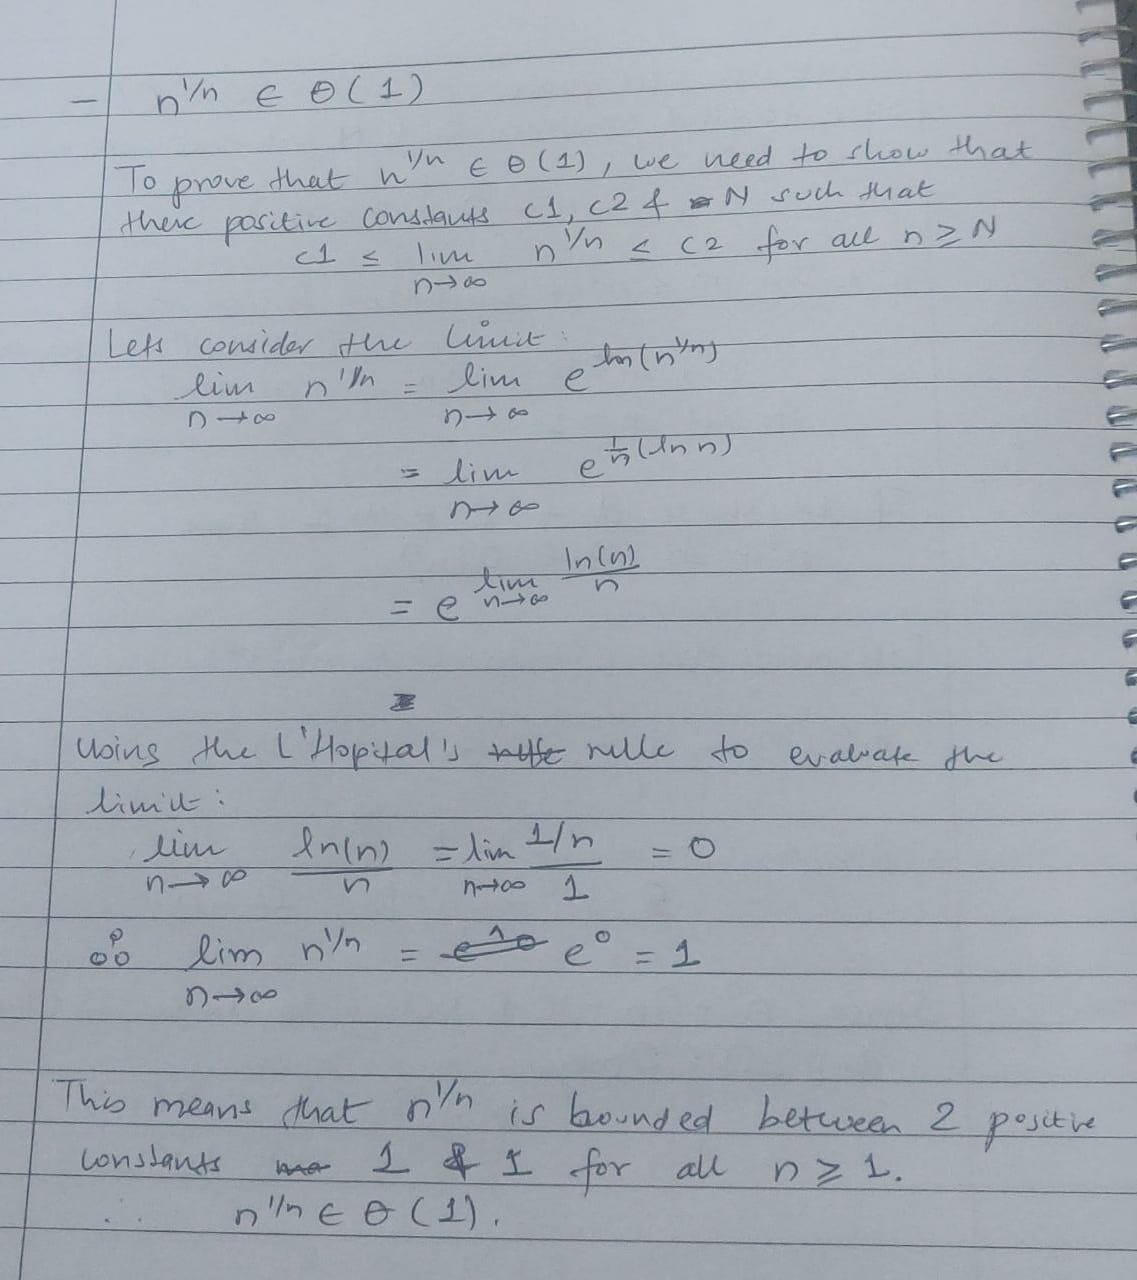 – n^1/n ∈ Θ(1)
To prove that n^1/n ∈ Θ(1), we need to show that
there positive constants c1, c2 & N such that
c1 ≤ lim n→∞ n^1/n ≤ c2 for all n ≥ N
Lets consider the limit:
lim n→∞ n^1/n = lim n→∞ e^ln(n^1/n)
= lim n→∞ e^1/n(ln n)
= e^lim n→∞ ln(n)/n
Using the L'Hopital's rule to evaluate the
limit:
lim n→∞ ln(n)/n = lim n→∞ 1/n / 1 = 0
∴ lim n→∞ n^1/n = e^0 = 1
This means that n^1/n is bounded between 2 positive
constants 1 & 1 for all n ≥ 1.
n^1/n ∈ Θ(1).